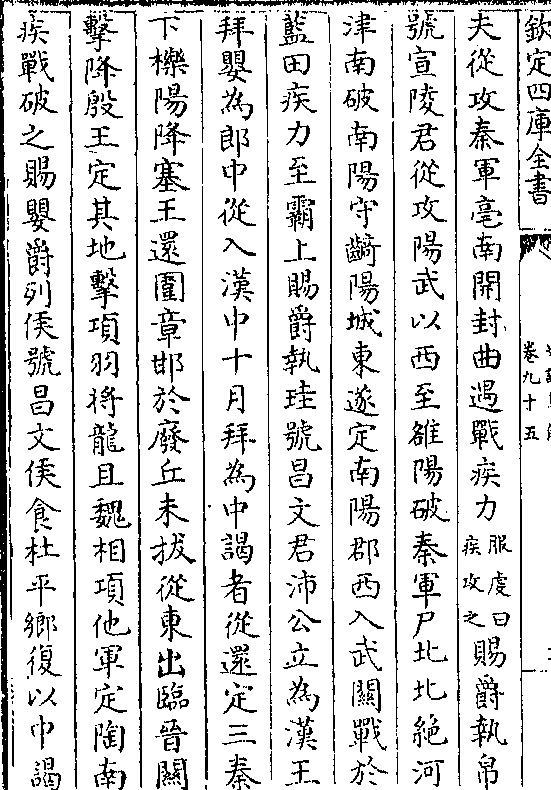 欽定四庫全書
卷九十五
夫從攻秦軍亳南開封曲遇戰疾力服虔曰疾攻之賜爵執帛
號宣陵君從攻陽武以西至雒陽破秦軍尸北北絶河
津南破南陽守齮陽城東遂定南陽郡西入武關戰於
藍田疾力至霸上賜爵執珪號昌文君沛公立為漢王
拜嬰為郎中從入漢中十月拜為中謁者從還定三秦
下櫟陽降塞王還圍章邯於廢丘未拔從東出臨晉關
擊降殷王定其地擊項羽將龍且魏相項他軍定陶南
疾戰破之賜嬰爵列侯號昌文侯食杜平鄉復以中謁